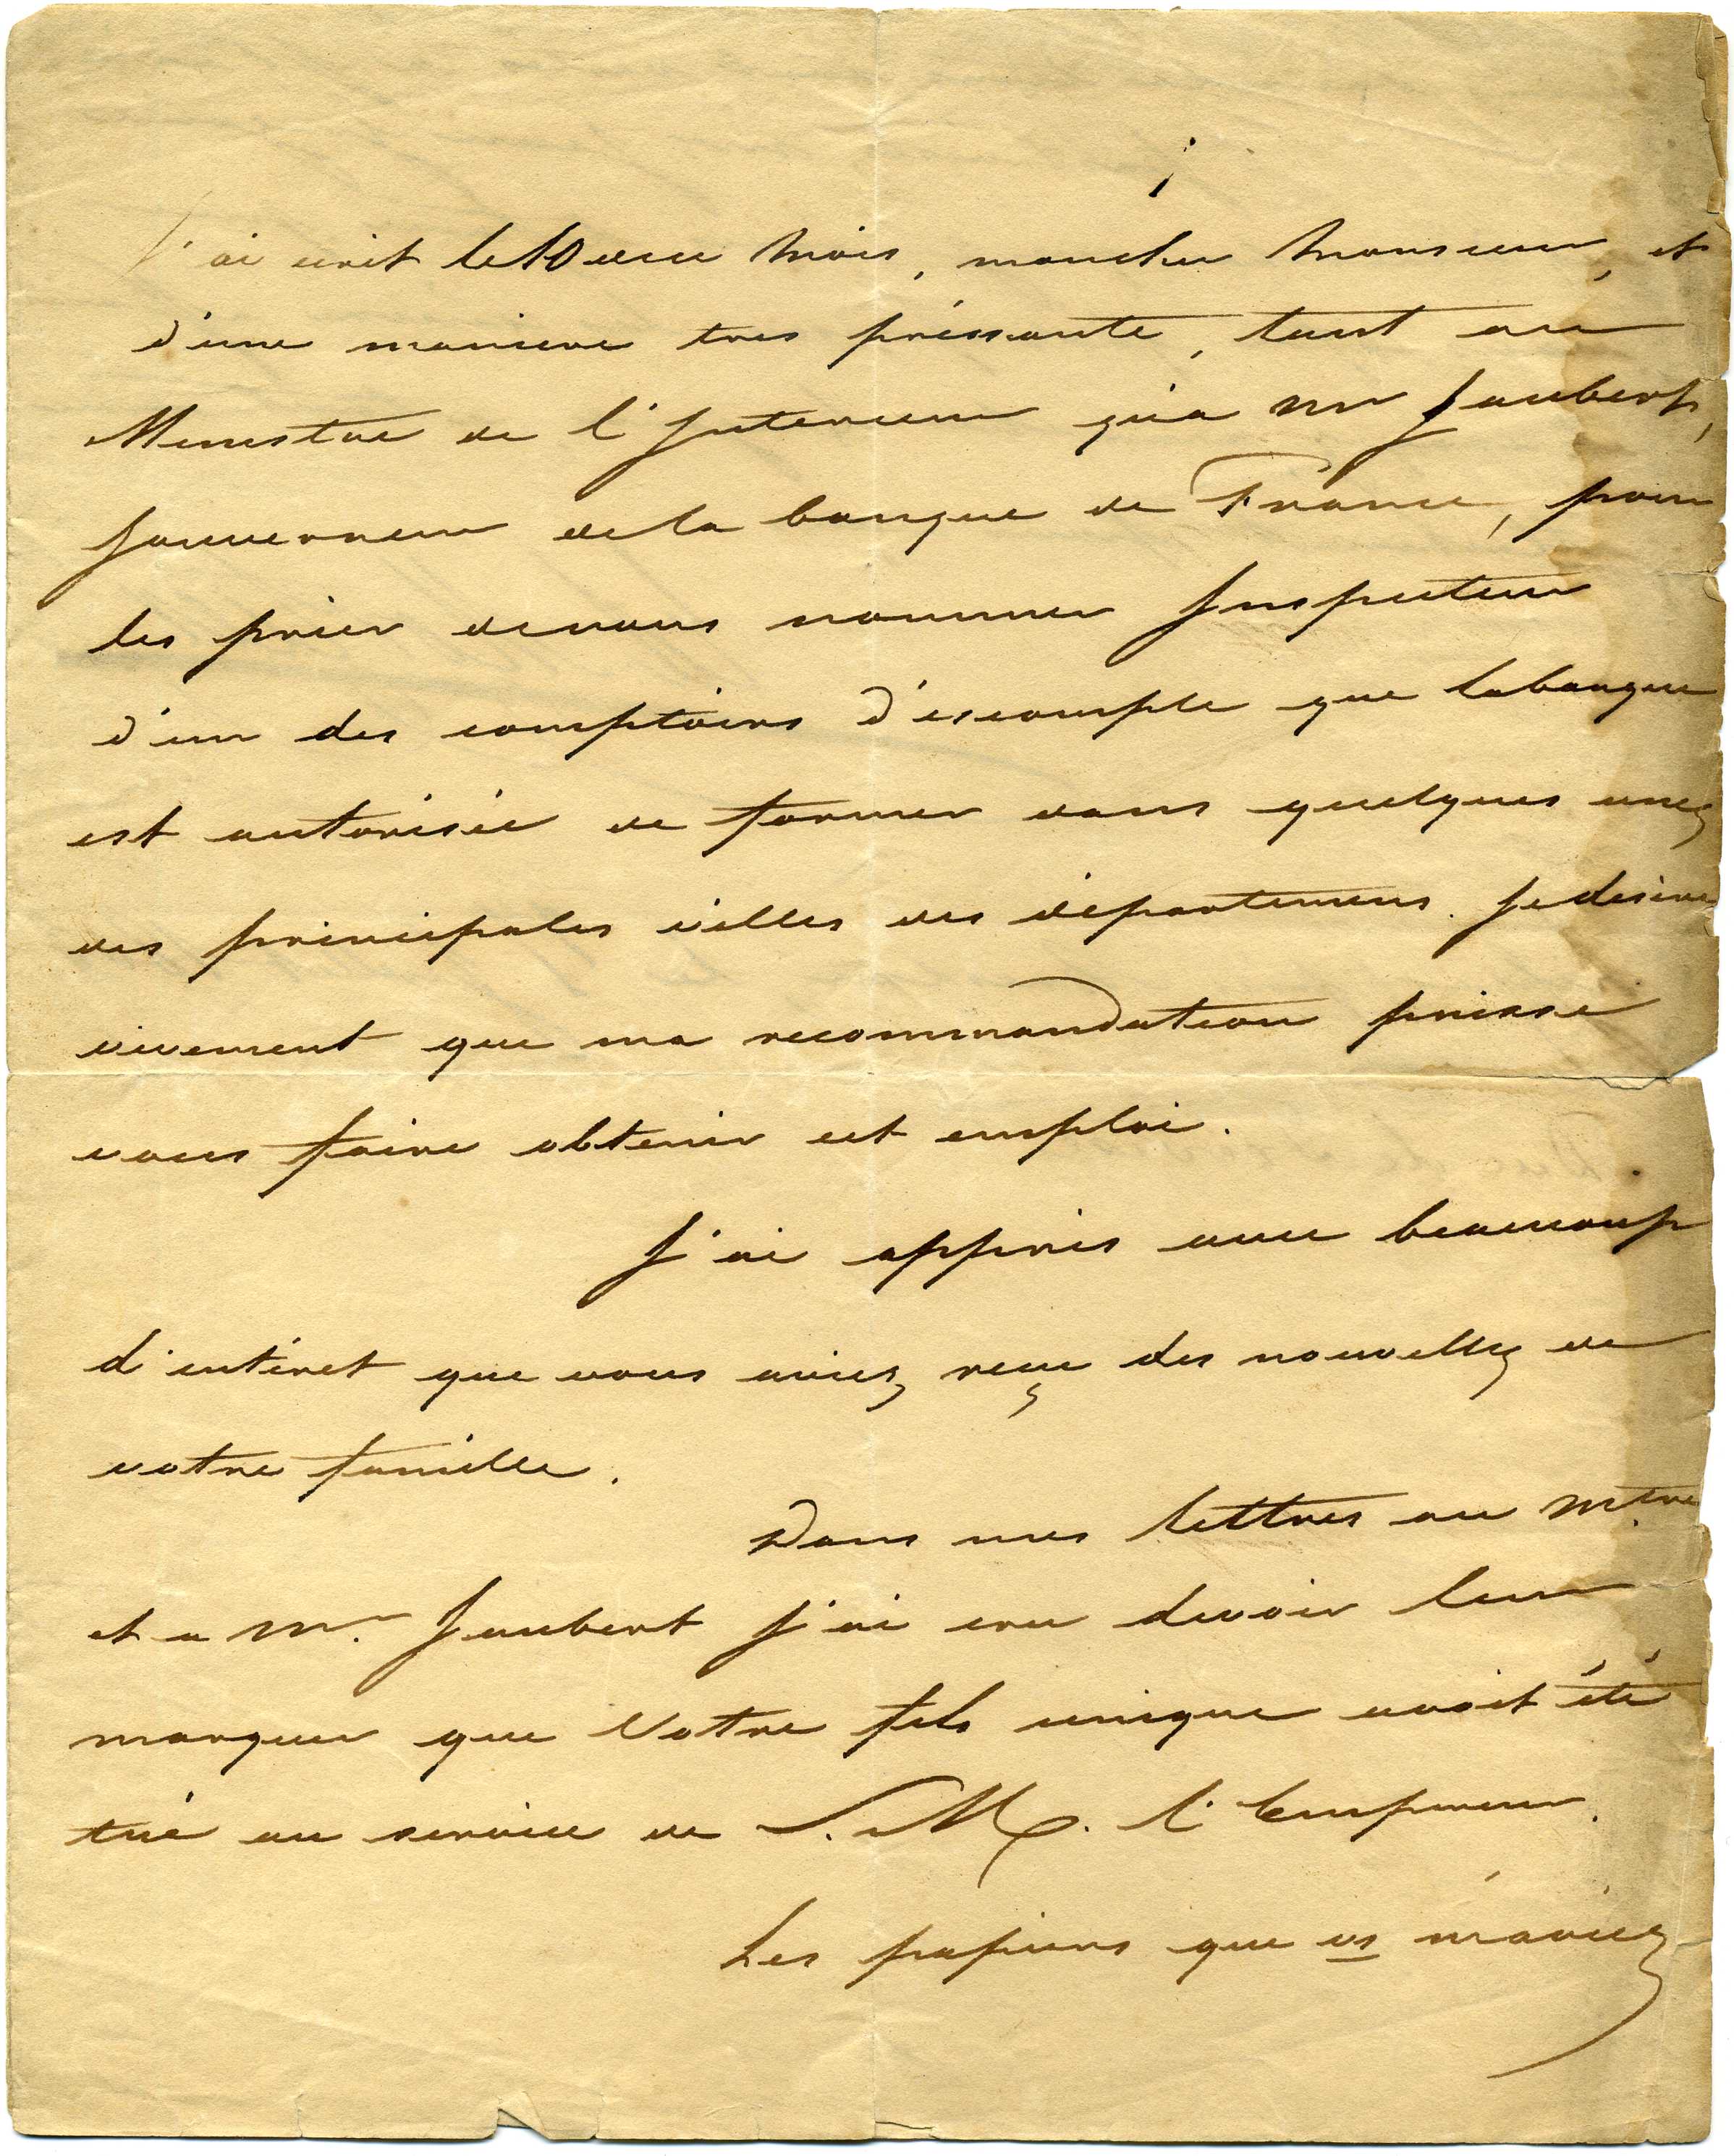 J'ai ecrit le 10 de ce Mois, mon cher Monsieur, et
d'une maniere tres préssante, tant au
Ministre de l'Interieur qu'a Mr Jaubert,
Gouverneur de la banque de France, pour
les prier de vous nommer Inspecteur
d'un des comptoirs d'escompte que la banque
est autorisée de former dans quelques unes
des principales villes des départemens. Je desire
vivement que ma recommandation puisse
vous faire obtenir cet emploi.
J'ai appris avec beaucoup
d'intéret que vous aviez reçu des nouvelles de
votre famille.
Dans mes lettres au Mtre
et a Mr. Jaubert j'ai cru devoir leur
marquer que Votre fils unique avoit été
tué au service de S. M. l'Empereur.
Les papiers que vs m'aviez